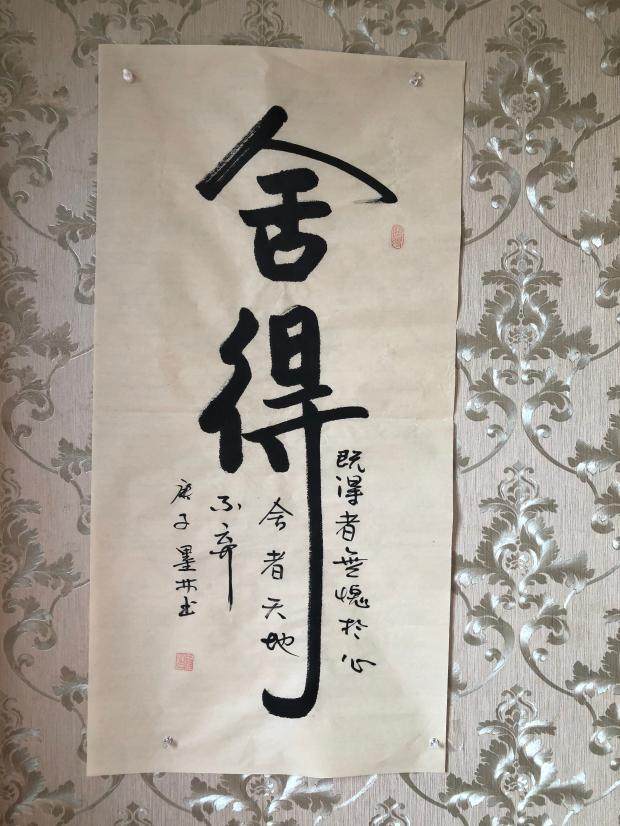 舍得
既得者無愧於心
舍者天地
不弃
庚子墨林书